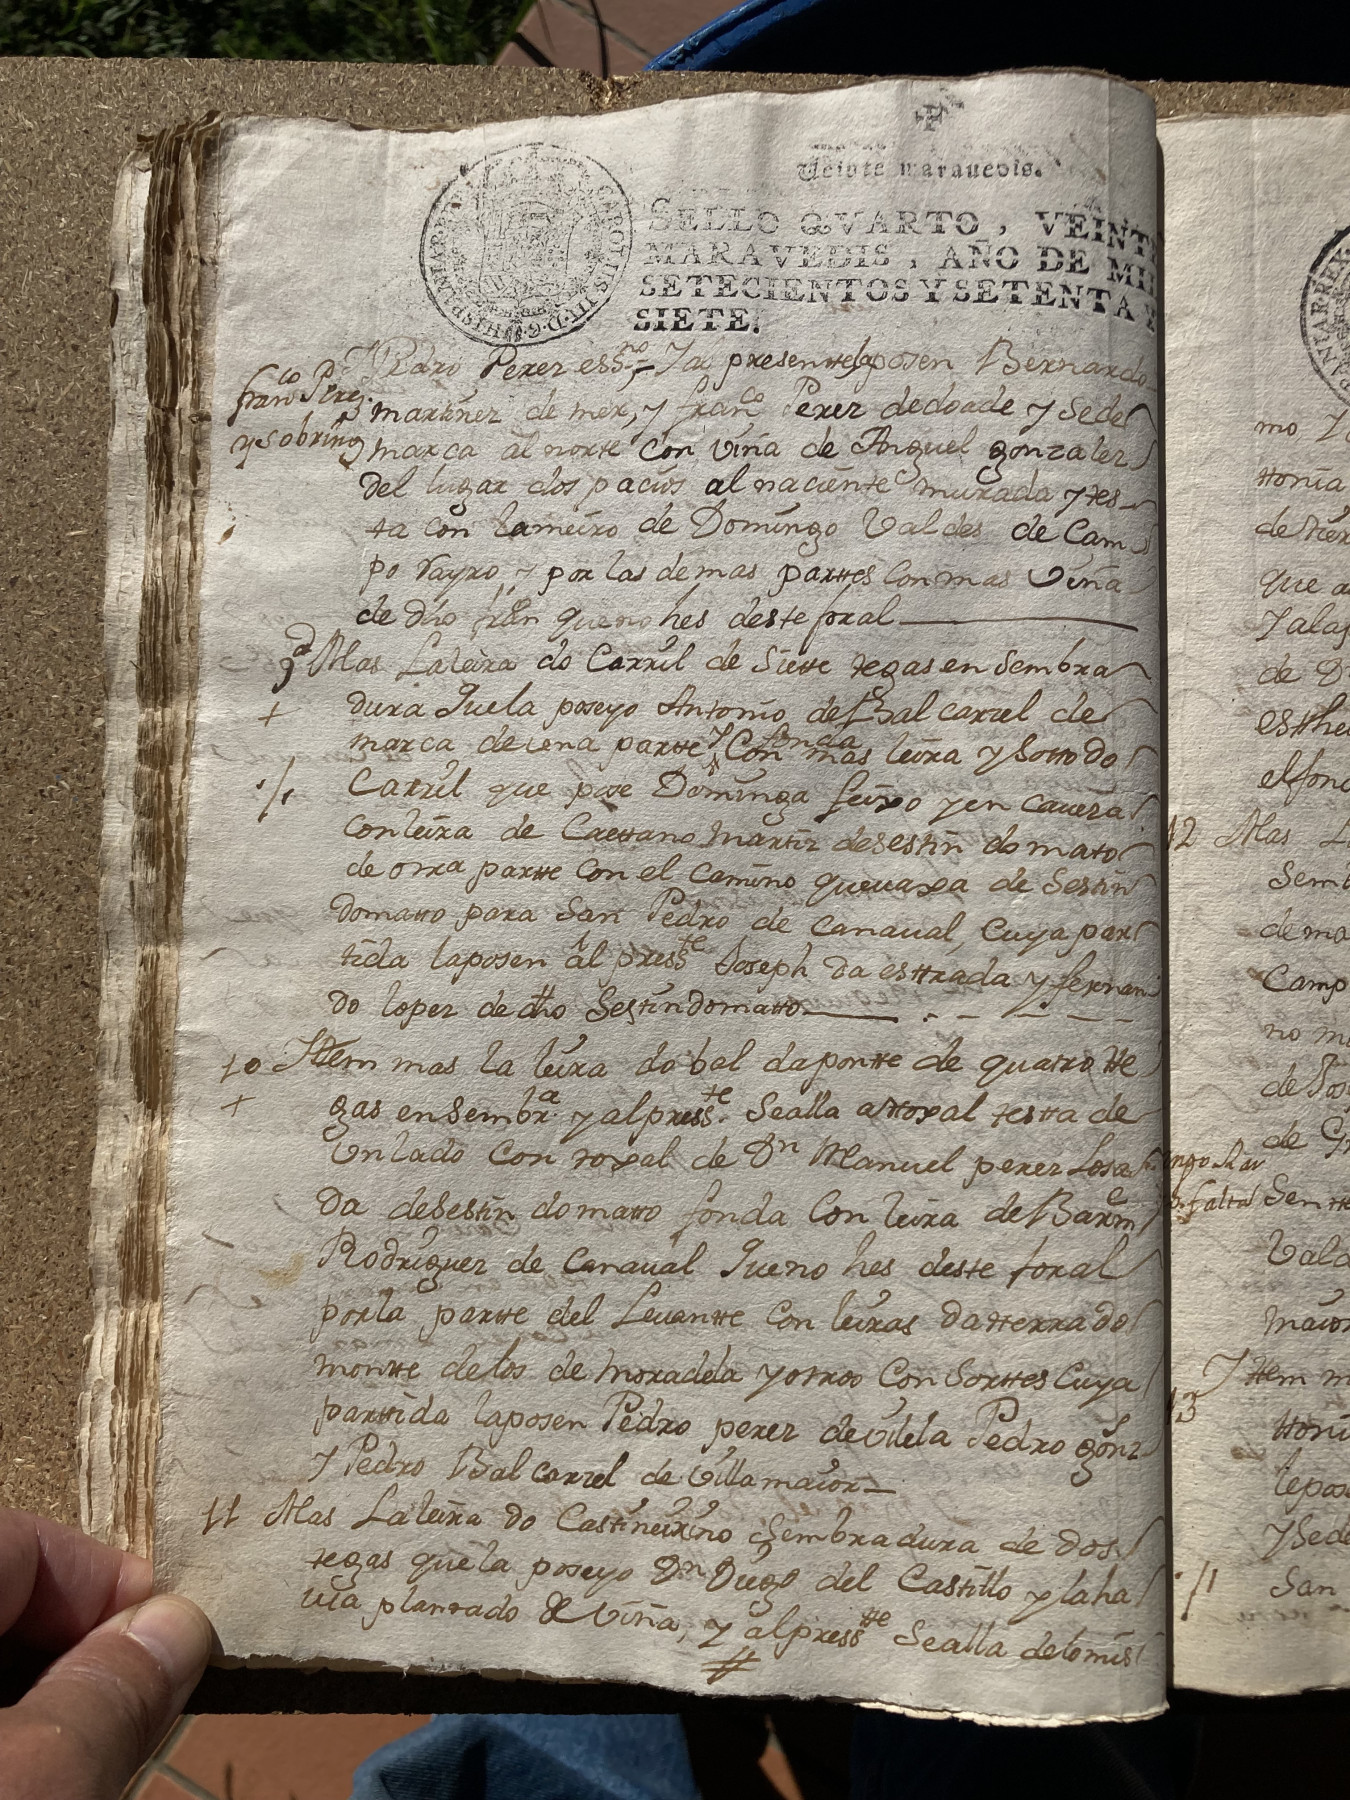 Veinte maravedis.
SELLO QVARTO, VEINTE
MARAVEDIS, AÑO DE MIL
SETECIENTOS Y SETENTA Y
SIETE.
CAROLUS III D G HISPANIAR REX
Pedro Perez essno Y al presente la posen Bernardo
franco Perez
y sobrino
martinez de mer, y franco Perez dedoade y sede
marca al norte con viña de Anguel gonzalez
del lugar dos pacios al naciente murada y tes
ta con lameiro de Domingo Valdes de Cam
po rayro y por las demas parttes Con mas Viña
de dho que no hes deste foral
9 Mas La leira do Carril de Siette tegas en Sembra
+ dura que la poseyo Antonio de Balcarcel de
marca de una partte y fonda Con mas leira y Sotto do
./. Carril que pose Dominga feijoo y en cavezª
con leira de Caettano Martiz de Sestin do mato
de otra partte con el camino que vaxa de Sestin
domatto para San Pedro de Canaval, Cuya par
tida la posen al presste Joseph da esttrada y fernan
do lopez de dho Sestin do matto
10 Ittem mas la leira do bal da pontte de quatro tte
+ gas en Sembrª. y al presste. Se alla a ttoxal testta de
Un lado Con toxal de Dn Manuel perez Losa
da de Sestin do matto fonda Con leira de Barme
Rodriguez de Canaval que no hes deste foral
por la partte del Levantte con leiras da tterra do
montte de los de moradela y otros Consorttes Cuya
parttida la posen Pedro perez de Vilela Pedro gonz
y Pedro Balcarcel de Villamaior
11 Mas La leira do Castiñeiriño Sembradura de dos
tegas que la poseyo Dn Diego del Castillo y la ha
via plantado de Viña, y al presstte Se alla de lo mis
mo, Y
ttonia
que a
de D
el fond
12 Mas L
Semb
de ma
Camp
de G
falta
Vald
maior
13 Y Ittem m
ttoni
y Sede
./. San